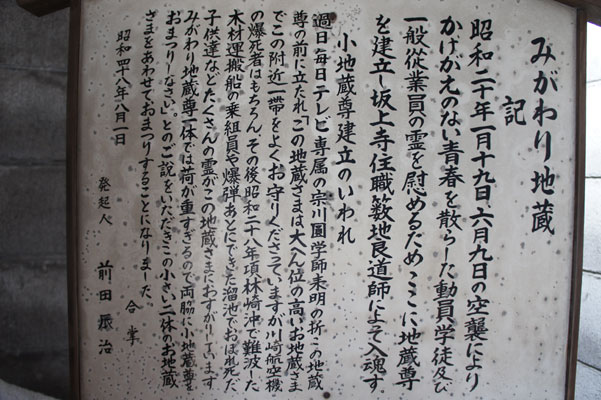 みがわり地蔵
記
昭和二十年一月十九日六月九日の空襲により
かけがえのない青春を散らした動員学徒及び
一般従業員の霊を慰めるためここに地蔵尊
を建立し坂上寺住職籔地良道師によって入魂す
小地蔵尊建立のいわれ
過日毎日テレビ専属の宗川圓学師来明の折この地蔵
尊の前に立たれ「この地蔵さまは大へん位の高いお地蔵さま
でこの附近一帯をよくお守りくださっていますが川崎航空機
の爆死者はもちろん、その後昭和二十八年項林崎沖で難波した
木材運搬船の乗組員や爆弾あとにできた溜池でおぼれ死だ
子供達などたくさんの霊がこの地蔵さまにおすがりしています
みがわり地蔵尊一体では荷が重すぎるので両脇に小地蔵尊を
おまつりしなさい」とのご説をいただきこの小さい二体のお地蔵
さまをあわせておまつりすることになりました。
合掌
昭和四十八年八月一日
発起人 前田振治